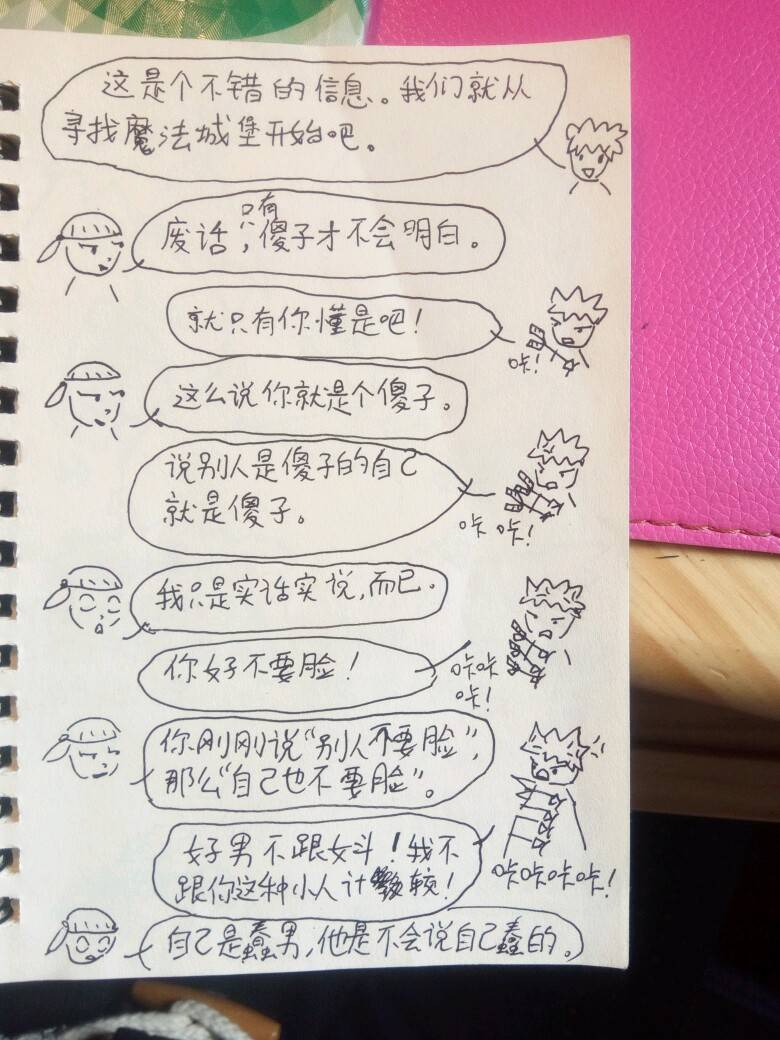 这是个不错的信息。我们就从
寻找魔法城堡开始吧。
废话，只有傻子才不会明白。
就只有你懂是吧！
咔！
这么说你就是个傻子。
说别人是傻子的自己
就是傻子。
咔咔！
我只是实话实说，而已。
你好不要脸！
咔咔
咔！
你刚刚说“别人不要脸”，
那么“自己也不要脸”。
好男不跟女斗！我不
跟你这种小人计较！
咔咔咔咔！
自己是蠢男，他是不会说自己蠢的。